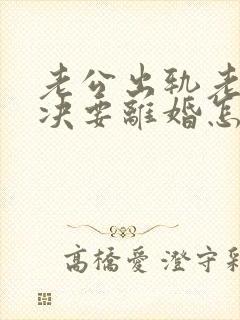 老公出轨老
决要離婚怎
高橋愛 澄守彩